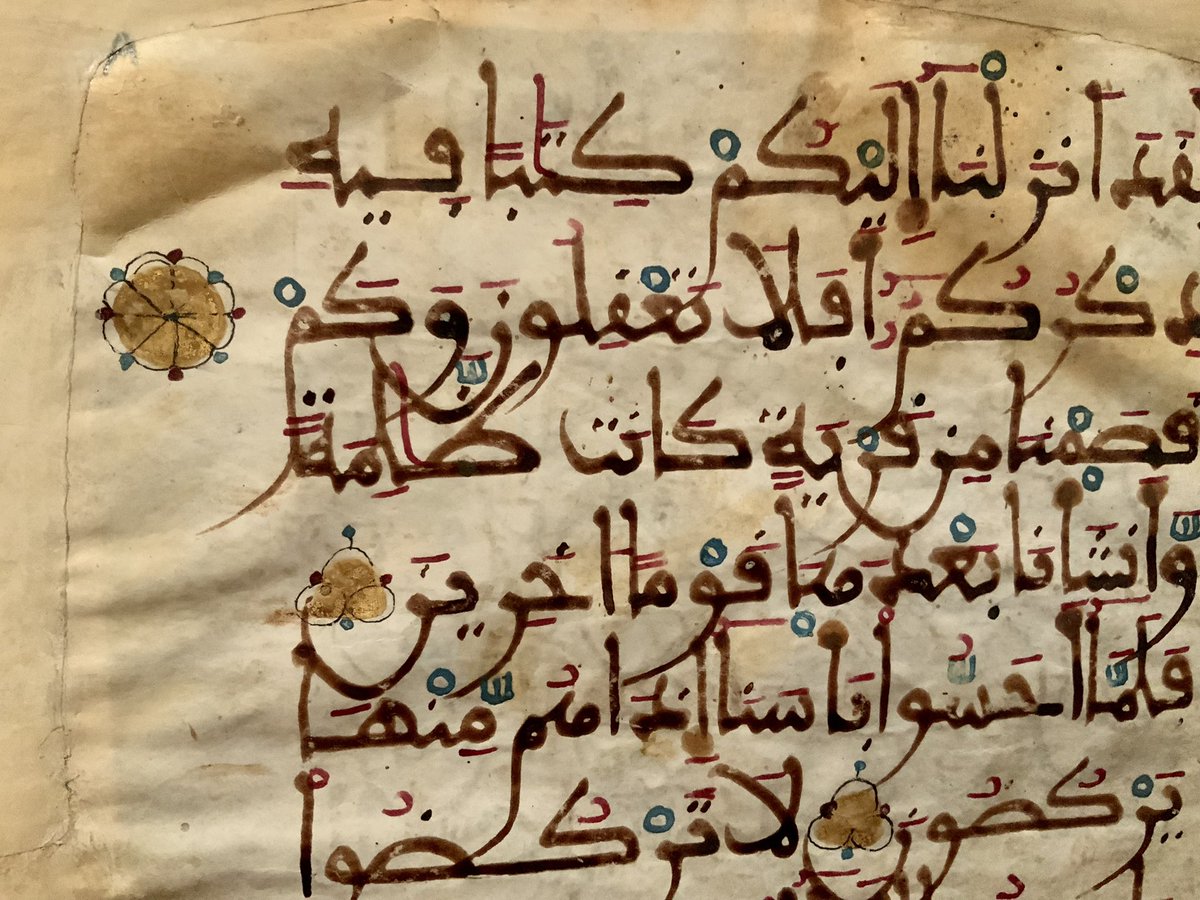 لَقَدَ اَنزَلْنَآ إِلَيْكُمْ كِتَٰبًا فِيهِ
ذِكْرُكُمُۥٓ أَفَلَا تَعْقِلُونَ وَكَمْ
قَصَمْنَا مِن قَرْيَةٍ كَانَتْ ظَٰلِمَةً
وَأَنشَأْنَا بَعْدَهَا قَوْمًا اٰخَرِينَ
فَلَمَّآ أَحَسُّواْ بَأْسَنَآ إِذَا هُم مِّنْهَا
يَرْكُضُونَ لَا تَرْكُضُواْ